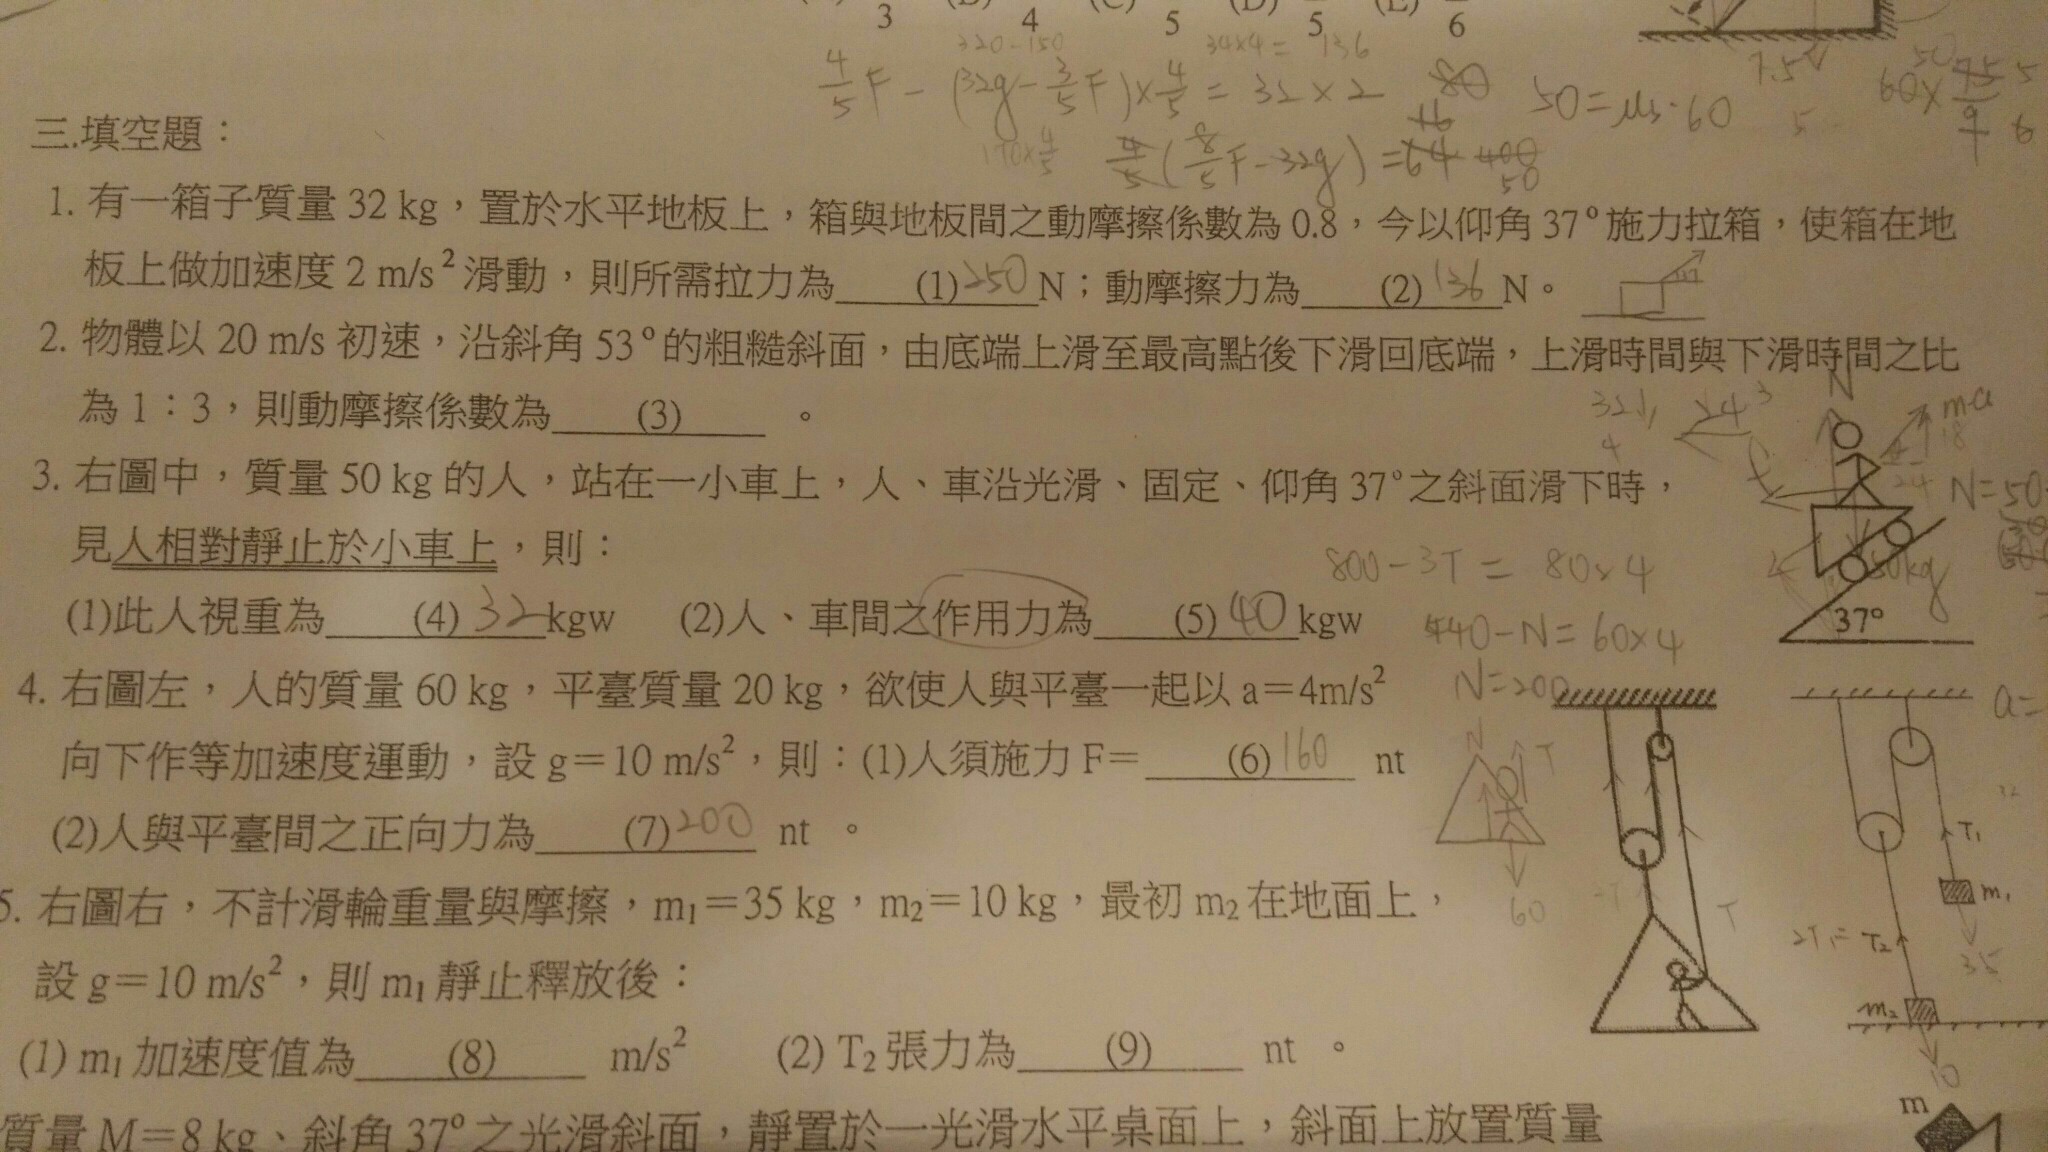 3 4 5 5 6
320-150 34×4= 136
4/5 F - (32g - 3/5 F) × 4/5 = 32 × 2
50 = μs·60
三.填空題：
1. 有一箱子質量 32 kg，置於水平地板上，箱與地板間之動摩擦係數為 0.8，今以仰角 37°施力拉箱，使箱在地
板上做加速度 2 m/s²滑動，則所需拉力為 (1) 250 N；動摩擦力為 (2) 136 N。
2. 物體以 20 m/s 初速，沿斜角 53°的粗糙斜面，由底端上滑至最高點後下滑回底端，上滑時間與下滑時間之比
為 1：3，則動摩擦係數為 (3) 。
3. 右圖中，質量 50 kg 的人，站在一小車上，人、車沿光滑、固定、仰角 37°之斜面滑下時，
見人相對靜止於小車上，則：
800-3T = 80×4
(1)此人視重為 (4) 32 kgw (2)人、車間之作用力為 (5) 40 kgw
440-N = 60×4
N=200
37°
4. 右圖左，人的質量 60 kg，平臺質量 20 kg，欲使人與平臺一起以 a＝4m/s²
向下作等加速度運動，設 g＝10 m/s²，則：(1)人須施力 F＝ (6) 160 nt
(2)人與平臺間之正向力為 (7) 200 nt 。
N T
60
2T T
T₁
m₁
35
2T₁= T₂
m₂
10
5. 右圖右，不計滑輪重量與摩擦，m₁＝35 kg，m₂＝10 kg，最初 m₂ 在地面上，
設 g＝10 m/s²，則 m₁ 靜止釋放後：
(1) m₁ 加速度值為 (8) m/s² (2) T₂ 張力為 (9) nt 。
m
質量 M＝8 kg、斜角 37°之光滑斜面，靜置於一光滑水平桌面上，斜面上放置質量